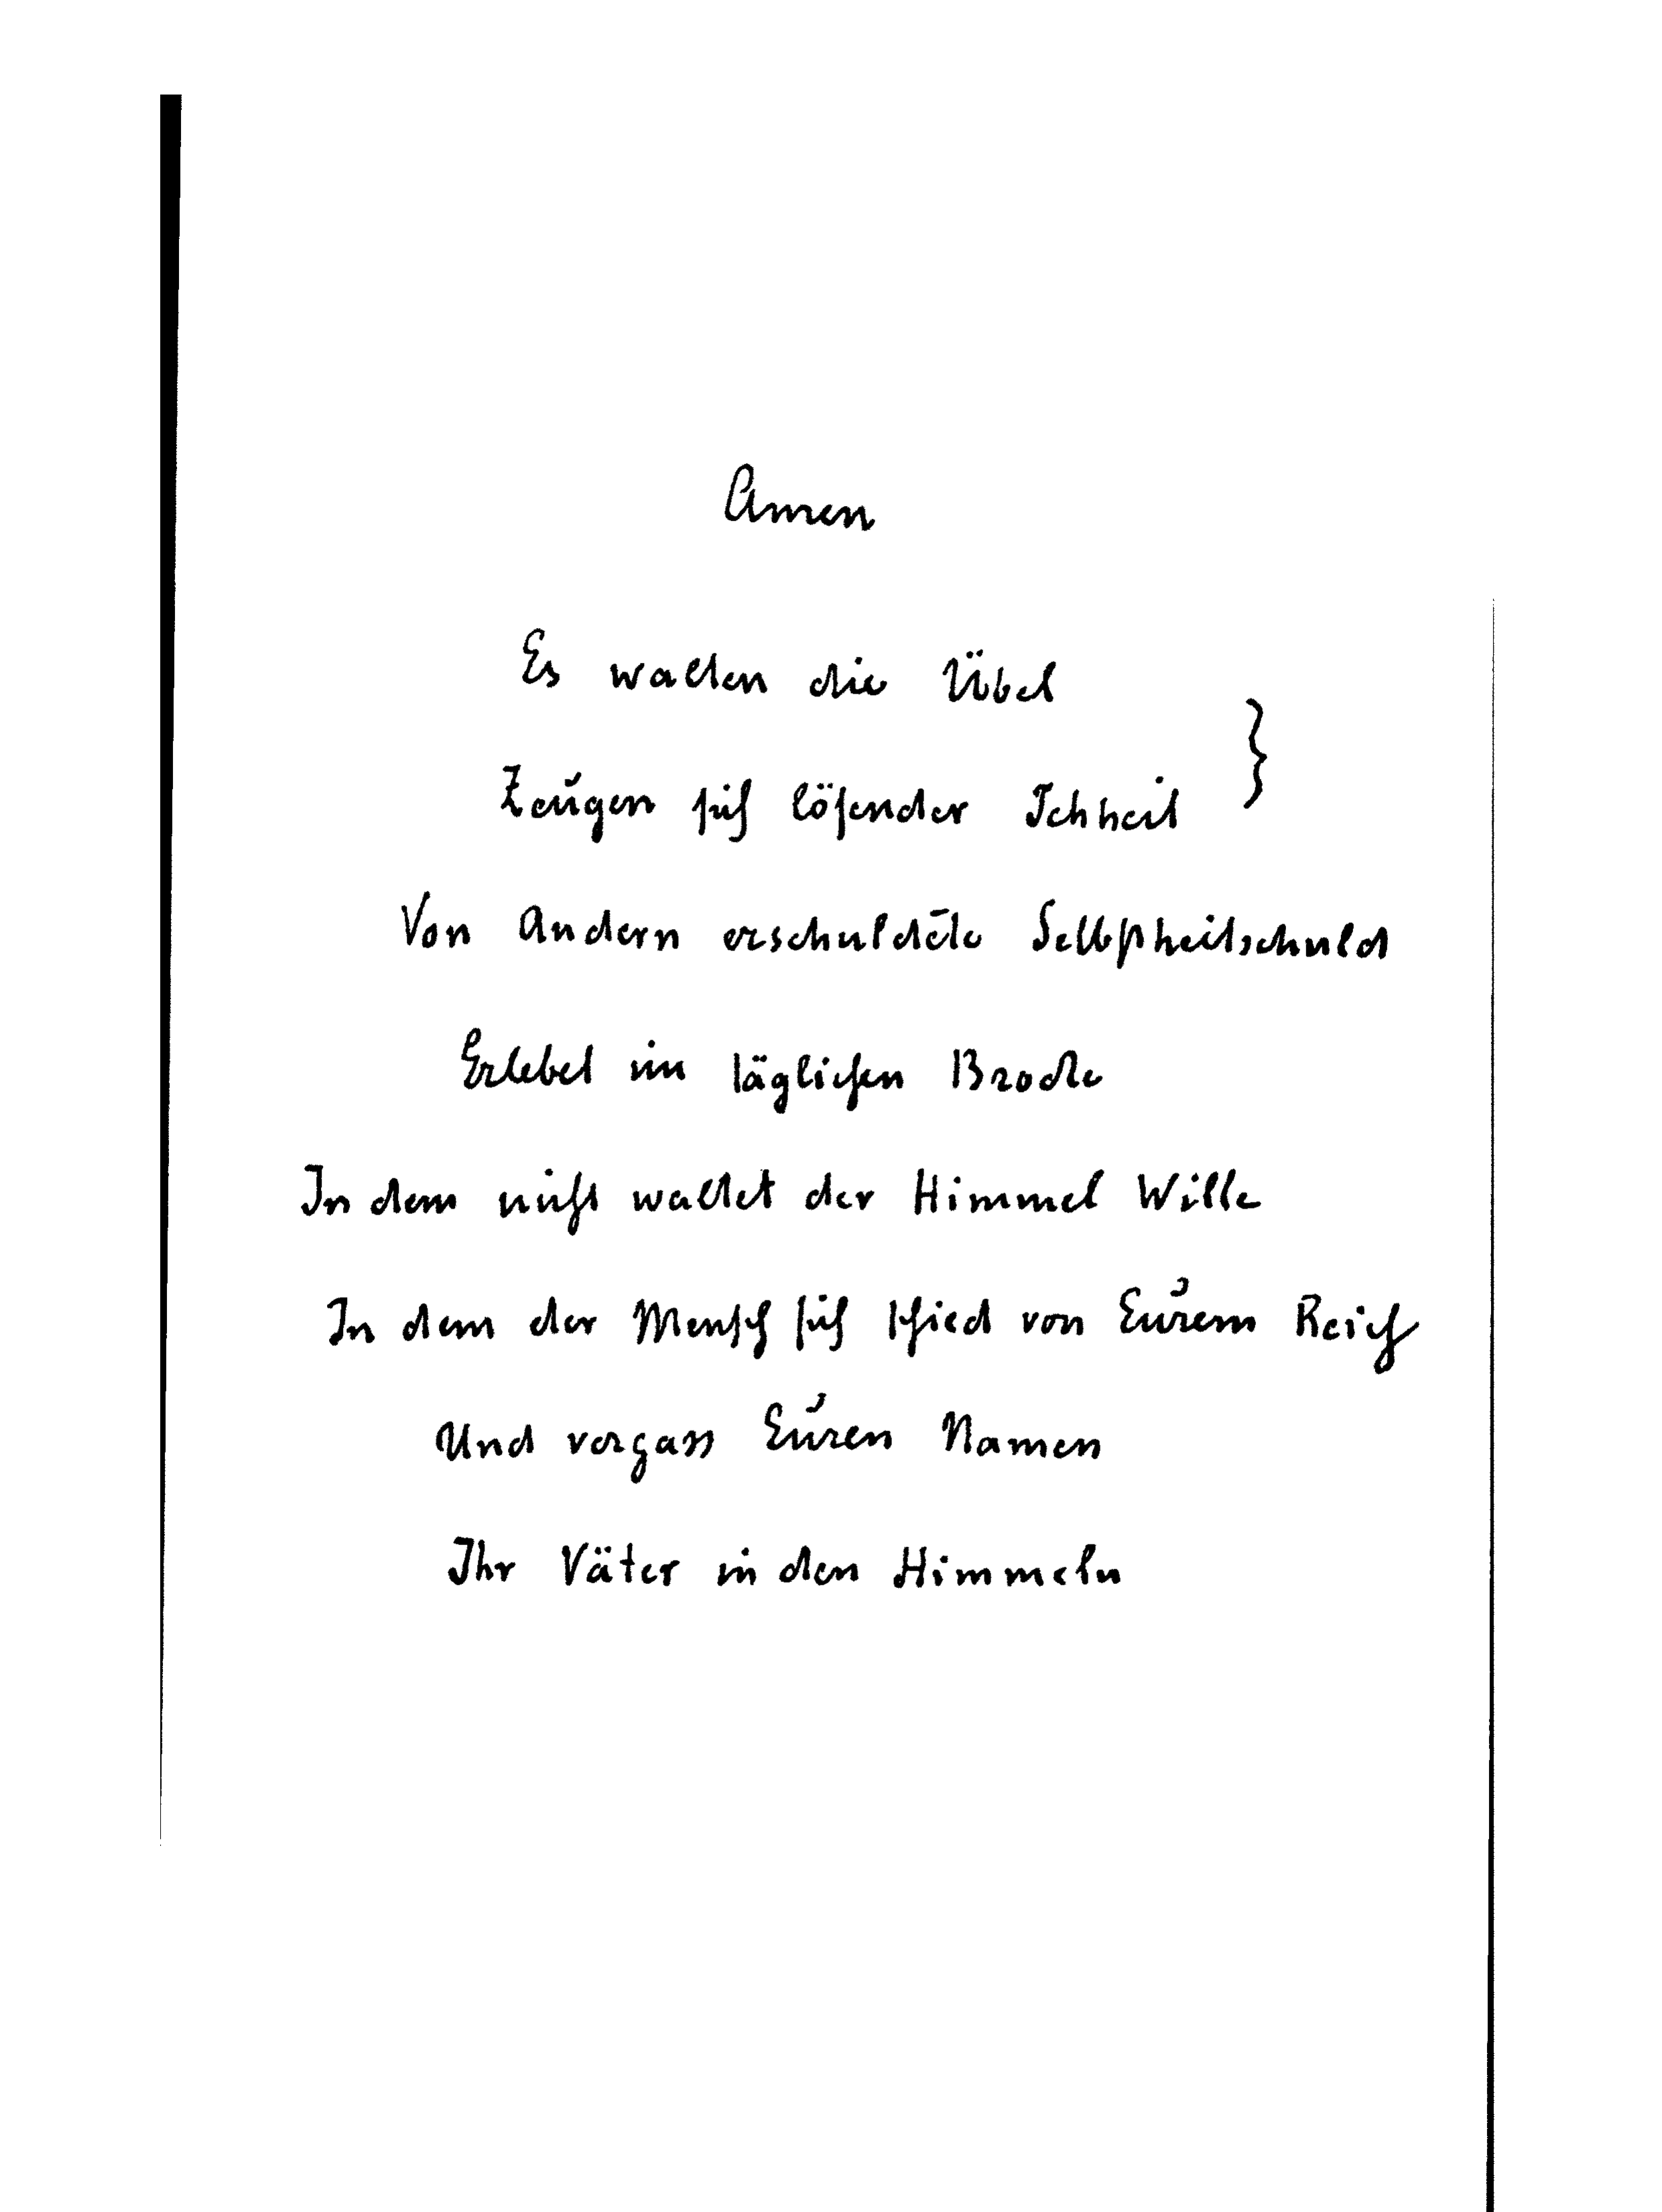 Amen
Es walten die Übel
Zeugen sich lösender Ichheit }
Von Andern erschuldete Selbstheitschuld
Erlebet im täglichen Brode
In dem nicht waltet der Himmel Wille
In dem der Mensch sich schied von Eurem Reich
Und vergass Euren Namen
Ihr Väter in den Himmeln